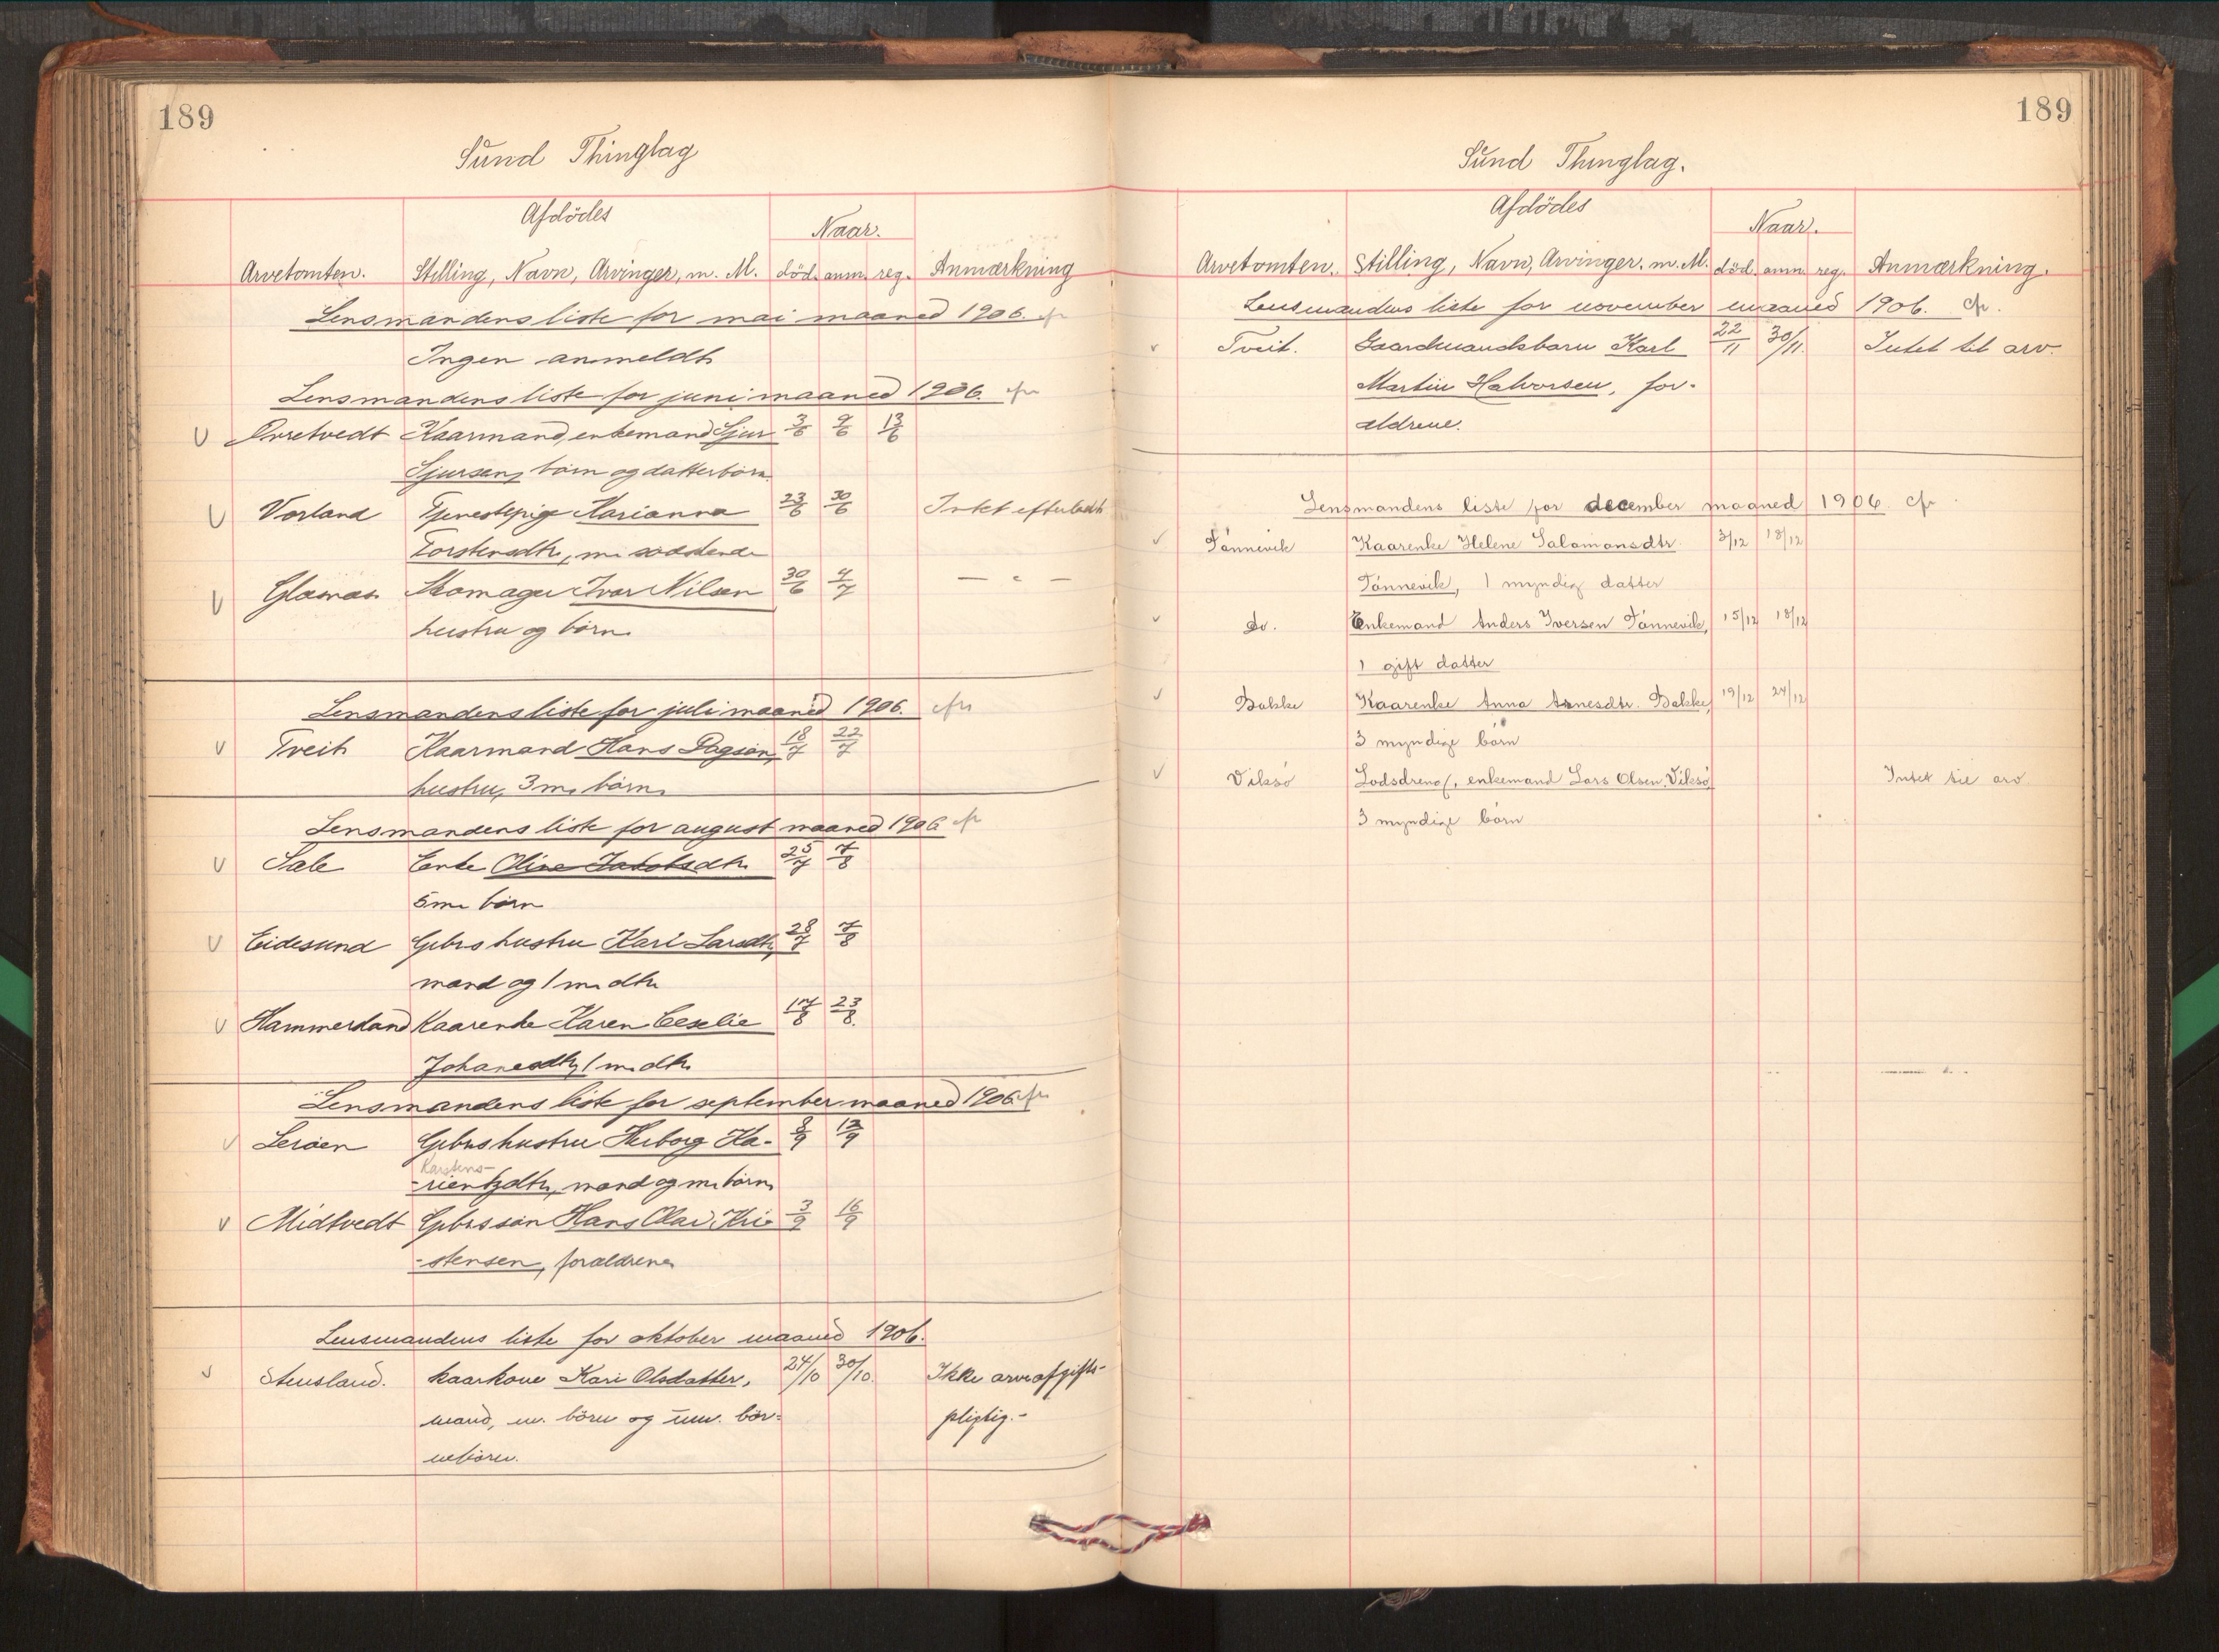 189
Sund Thinglag
Afdödes
Naar.
Arvetomten. Stilling, Navn, Arvinger, m. M. död. anm. reg. Anmærkning
Lensmandens liste for mai maaned 1906. cfr
Ingen anmeldt
Lensmandens liste for juni maaned 1906. cfr
V Kaarmand, enkemand Sjur 3/6 9/6 13/6
Sjursen, börn og datterbörn.
V Vorland Tjenestepige Marianna 23/6 30/6 Intet efterladt
Torstensdtr, m. södskende
V Glæsnæs Skomager Ivar Nilsen 30/6 4/7 — " —
hustru og börn
Lensmandens liste for juli maaned 1906. cfr
V Tveit Kaarmand Hans Dagsön, 18/7 22/7
hustru, 3 m. börn.
Lensmandens liste for august maaned 1906 cfr
V Sale Enke Oline Jakobsdtr. 25/7 7/8
5 m. börn
V Eidesund Gbrs hustru Kari Larsdtr, 28/7 7/8
mand og 1 m. dtr
V Hammersland Kaarenke Karen Ceselie 17/8 23/8.
Johanesdtr, 1 m. dtr.
Lensmandens liste for september maaned 1906. cfr
V Leröen Gbrs hustru Herborg Ka- 8/9 12/9
Karstens-
-rientzdtr, mand og m. börn
V Midtvedt Gbrs sön Hans Olai Kri- 3/9 16/9
-stensen, forældrene
Lensmandens liste for oktober maaned 1906.
V Stensland. Kaarkone Kari Olsdatter, 24/10 30/10. Ikke arveafgifts-
mand, m. börn og um. bör- pligtig.-
nebörn.
189
Sund Thinglag.
Afdödes
Naar.
Arvetomten. Stilling, Navn, Arvinger. m. M. död. anm. reg. Anmærkning.
Lensmandens liste for november maaned 1906. cfr.
v Tveit. Gaardmandsbarn Karl 22/11 30/11. Intet til arv.
Martin Halvorsen, for-
ældrene.
Lensmandens liste for december maaned 1906. cfr
v Tönnevik Kaarenke Helene Salamonsdtr. 3/12 18/12
Tönnevik, 1 myndig datter
v Do. Enkemand Anders Iversen Tönnevik, 15/12 18/12
1 gift datter
v Bakke Kaarenke Anna Arnesdtr. Bakke, 19/12 24/12
3 myndige börn
v Viksö Lodsdreng, enkemand Lars Olsen Viksö Intet til arv
3 myndige börn